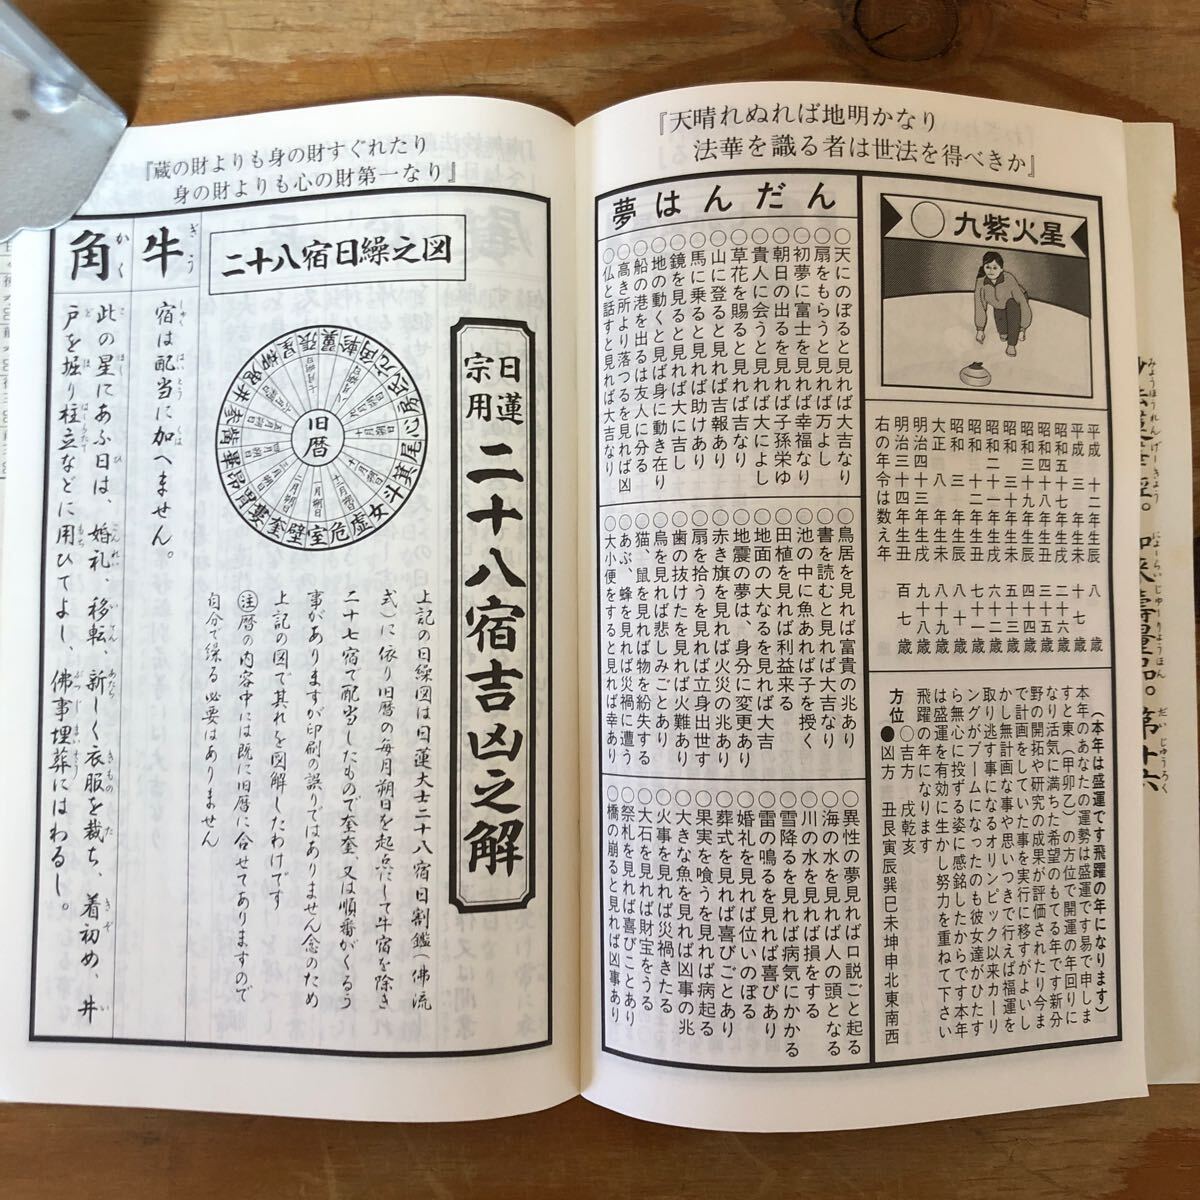 『天晴れぬれば地明かなり
法華を識る者は世法を得べきか』
九紫火星
平成十二年生辰 八歳
平成三年生未 十七歳
昭和五十七年生戌 二十六歳
昭和四十八年生丑 三十五歳
昭和三十九年生辰 四十四歳
昭和三十年生未 五十三歳
昭和二十一年生戌 六十二歳
昭和十二年生丑 七十一歳
昭和三年生辰 八十歳
大正八年生未 八十九歳
明治四十三年生戌 九十八歳
明治三十四年生丑 百七歳
右の年令は数え年
(本年は盛運です飛躍の年になります)
本年のあなたの運勢は盛運です易で申しま
すと東(甲卯乙)の方位で開運の年回りに
なり活気に満ちた希望のもてる年です新分
野の開拓や研究の成果が評価されたり今ま
で計画をしていた事を実行に移すがよいし
かし無計画な事や思いつきで行えば福運を
取り逃す事になるオリンピック以来カーリ
ングがブームになったのも彼女達がひたす
ら無心に投ずる姿に感銘したからです本年
は盛運を有効に生かし努力を重ねて下さい
飛躍の年になります
方位 ○吉方 戌乾亥
●凶方 丑艮寅辰巽巳未坤申北東南西
夢はんだん
○天にのぼると見れば大吉なり
○扇をもらうと見れば万よし
○初夢に富士を見れば幸福なり
○朝日の出ると見れば子孫栄ゆ
○貴人に会うと見れば大によし
○草花を賜ると見れば吉なり
○山に登ると見れば吉報あり
○馬に乗ると見れば助けあり
○鏡を見ると見れば大に吉し
○地の動くと見ば身に動き在り
○船の港を出るは友人に分る
○高き所より落つるを見れば凶
○仏と話すと見れば大吉なり
○鳥居を見れば富貴の兆あり
○書を読むと見れば大吉なり
○池の中に魚あれば子を授く
○田植を見れば利益来る
○地面の大なるを見れば大吉
○地震の夢は、身分に変更あり
○赤き旗を見れば火災の兆あり
○扇を拾うを見れば立身出世す
○歯の抜けたを見れば火難あり
○烏を見れば悲しみごとあり
○猫、鼠を見れば物を紛失する
○あぶ、蜂を見れば災禍に遭う
○大小便をすると見れば幸あり
○異性の夢見れば口説ごと起る
○海の水を見れば人の頭となる
○川の水を見れば損をする
○雪降るを見れば病気にかかる
○雷の鳴るを見れば喜びあり
○婚礼を見れば位いのぼる
○葬式を見れば喜びごとあり
○果実を喰うを見れば病起る
○大きな魚を見れば凶事の兆
○火事を見れば災禍きたる
○大石を見れば財宝をうる
○祭礼を見れば喜びごとあり
○橋の崩ると見れば凶事あり
『蔵の財よりも身の財すぐれたり
身の財よりも心の財第一なり』
日蓮宗用 二十八宿吉凶之解
二十八宿日繰之図
旧暦
上記の日繰図は日蓮大士二十八宿日割鑑(佛流
式)に依り旧暦の毎月朔日を起点にして牛宿を除き
二十七宿で配当したもので奎奎、又は順番がくるう
事がありますが印刷の誤りではありません念のため
上記の図で其れを図解したわけです
注暦の内容中には既に旧暦に合せてありますので
自分で繰る必要はありません
牛 ぎう
宿は配当に加へません。
角 かく
此の星にあふ日は、婚礼、移転、新しく衣服を裁ち、着初め、井
戸を堀り柱立などに用ひてよし、佛事埋葬にはわるし。